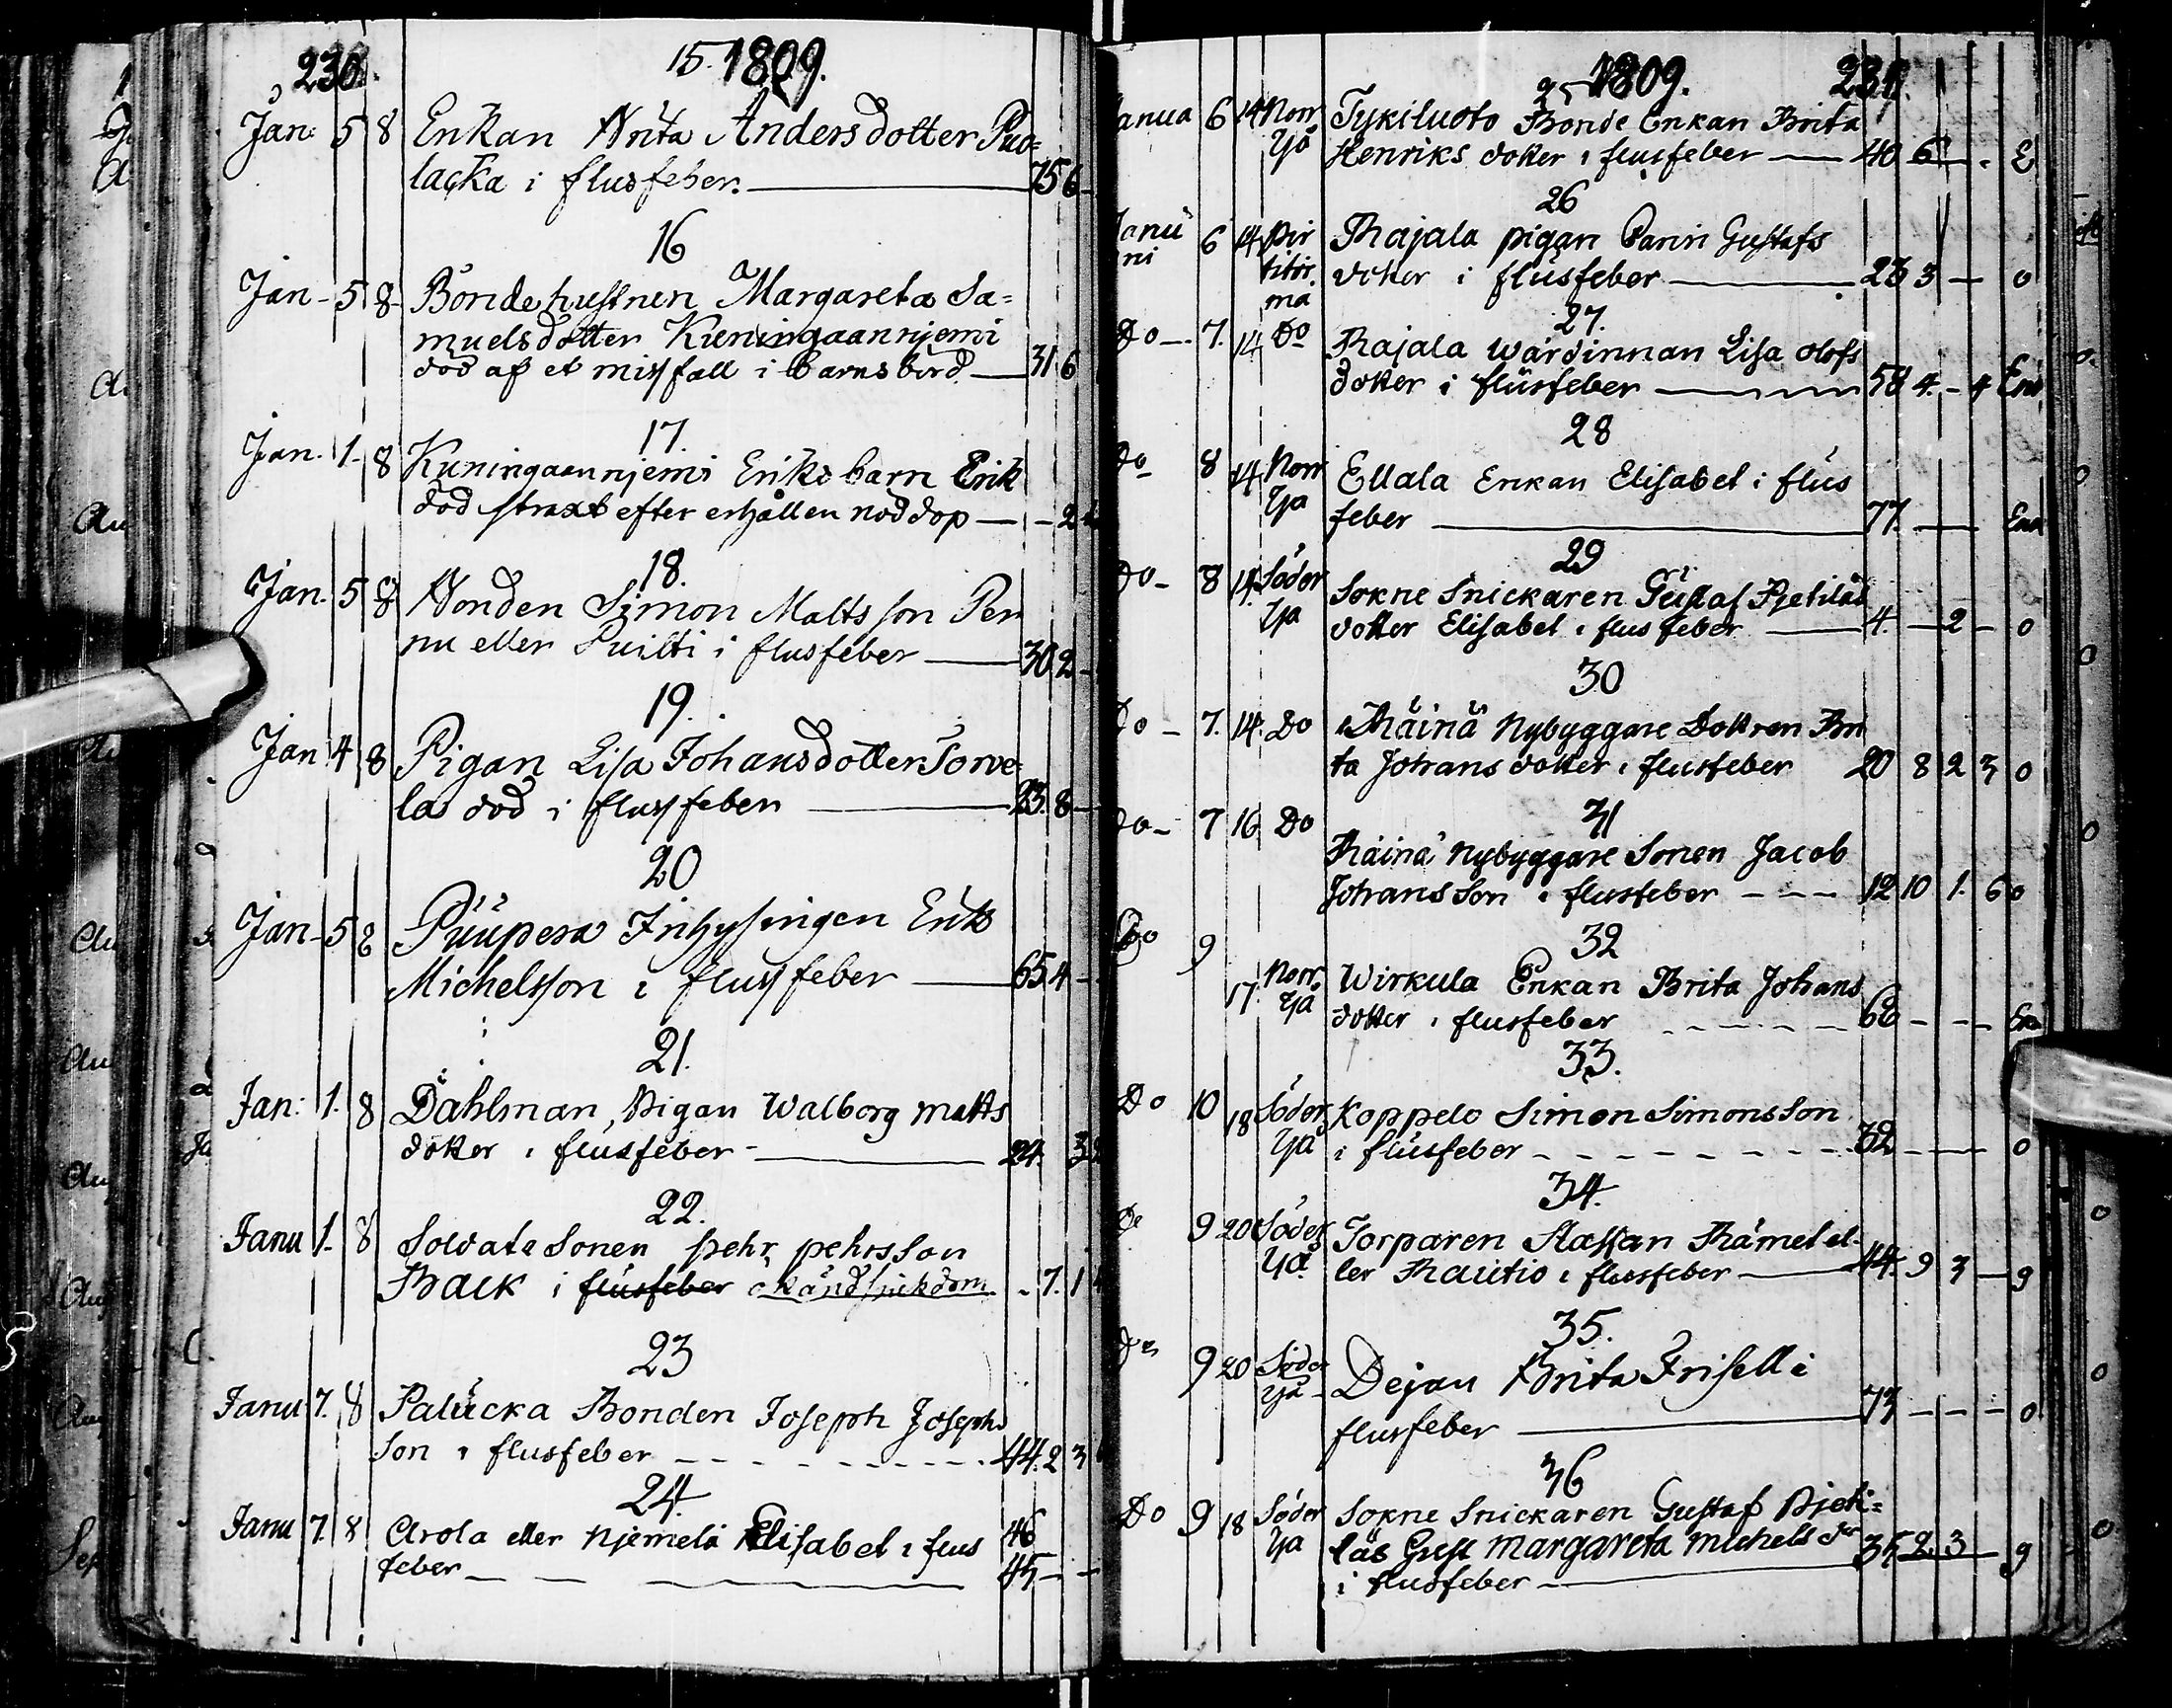 230. 15. 1809.
Jan: 5 8 Enkan Brita Andersdotter Puo=
lacka i flusfeber. 75 6 -
16
Jan - 5 8 Bondehustnen Margareta Sa=
muelsdotter Kuningaannjemi
död af et missfall i barnsbörd 31. 6
17.
Jan. 1. 8 Kuningaannjemi Eriks barn Erik
död straxt efter erhållen nöddop - - 2
18.
Jan. 5 8 Bonden Simon Matts son Pen
nu eller Puilti i flusfeber 30 2 -
19.
Jan 4 8 Pigan Lisa Johansdotter Torve
las död i flussfeber 23. 8 -
20
Jan - 5 8 Puupera Inhysingen Erik
Michelsson i flussfeber 65 4 -
21.
Jan: 1. 8 Dahlman, Pigan Walborg Matts
dotter i flusfeber - 24. 3
22.
Janu 1. 8 Soldate Sonen Pehr Pehrsson
Back i flusfeber okänd siukdom - 7. 1
23
Janu 7. 8 Palucka Bonden Joseph Josephs
son i flusfeber 44. 2 3
24.
Janu 7. 8 Arola eller Njemelä Elisabet i flus 46
feber 45 - -
25 1809. 231.
Janua 6 14 Norr Tykiluoto Bonde Enkan Brita
Yå Henriks dotter i flusfeber 40 6 - - E
26
Janu 6 14 Pir Rajala pigan Carin Gustafs
ni titör dotter i flusfeber 23 3 - 0
må
27.
Do - 7. 14 Do Rajala Wärdinnan Lisa Olofs
dotter i flusfeber 58 4. - 4 Enk
28
Do 8 14 Norr Ellala Enkan Elisabet i flus
Ya feber 77. - Enk
29
Do - 8 14. Söder Sokne Snickaren Gustaf Pjetiläs
Ya dotter Elisabet i flusfeber 4. - 2 - 0
30
Do - 7. 14. Do Räinä Nybyggare Dottren Bri
ta Johans dotter i flusfeber 20 8 2 3 0
31
Do - 7 16 Do
Räinä Nybyggare Sonen Jacob
Johansson i flusfeber - - - 12 10 1. 6 0
32
Do 9
17. Norr Wirkula Enkan Brita Johans
Yå dotter i flusfeber 66 - - - Enk
33.
Do 10 18 Söder Koppelo Simon Simonsson
Yå i flusfeber 32 - - 0
34.
Do 9 20 Söder Torparen Staffan Rämet el-
Yå. ler Rautio i flusfeber 44. 9 3 - g
35.
Do 9 20 Söder Dejan Brita Frisell i
Yå - flusfeber 73 - - - 0
36
Do 9 18 Söder Sokne Snickaren Gustaf Pjeti=
Ya läs Hust Margareta Michels dr 35 2. 3 - g
i flusfeber -